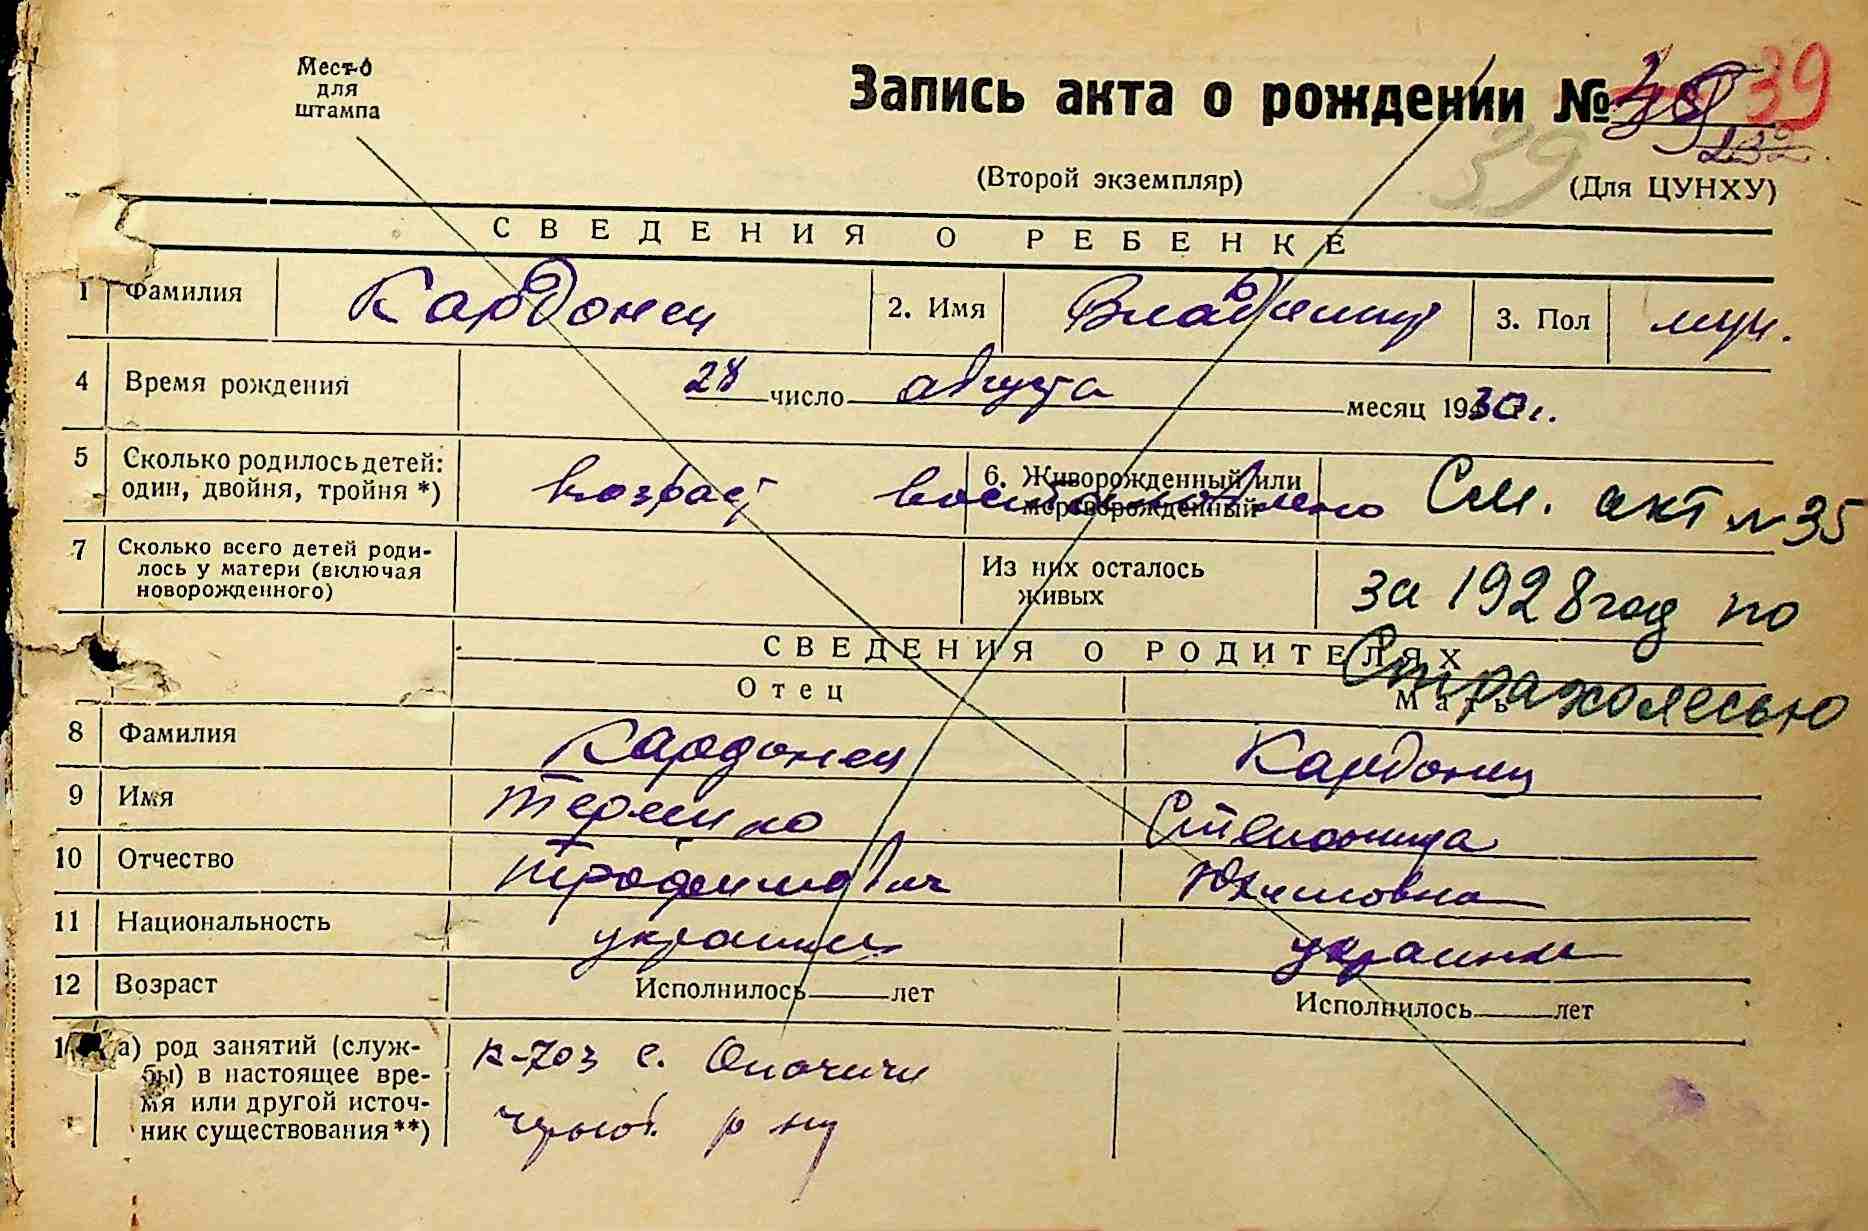 Место
для
штампа
Запись акта о рождении № 39
232
39
(Второй экземпляр)
(Для ЦУНХУ)
СВЕДЕНИЯ О РЕБЕНКЕ
1 Фамилия Кардонец 2. Имя Владимир 3. Пол муж.
4 Время рождения 28 число августа месяц 1930 г.
5 Сколько родилось детей: один, двойня, тройня *) 6. Живорожденный или мертворожденный
возраст восстановлено См. акт № 35
7 Сколько всего детей родилось у матери (включая новорожденного) Из них осталось живых
за 1928 год по
Страхолесью
СВЕДЕНИЯ О РОДИТЕЛЯХ
Отец Мать
8 Фамилия Кардонец Кардонец
9 Имя
10 Отчество Трофимович Юхимовна
11 Национальность украинец украинка
12 Возраст Исполнилось лет Исполнилось лет
а) род занятий (служ-
бы) в настоящее вре-
мя или другой источ-
ник существования**)
к-хоз с. Опачичи
черноб. р-ну